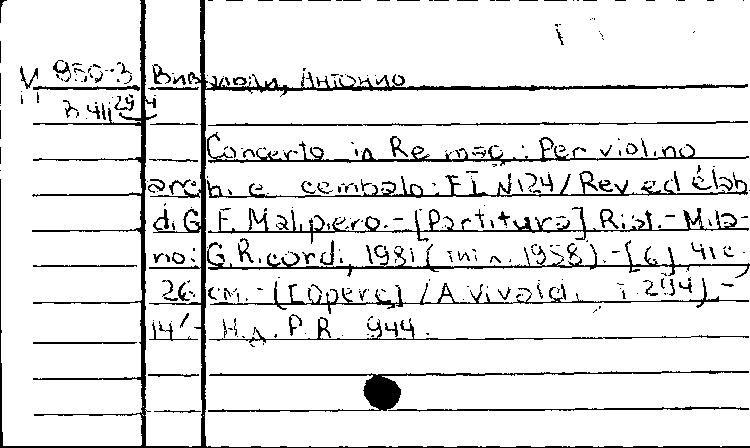 И 950-3 Вивальди, Антонио
3.411 29 4
Concerto in Re mag.: Per violino
archi e cembalo: F.I N124 / Rev. ed élab
di G. F. Malipiero.-[Partitura]. Rist.-Mila-
no: G. Ricordi, 1981 (1958).-[6], 41 c.;
26 см.-([Opere] / A. Vivaldi, т. 294).-
14'.- Н.д. P.R. 944.